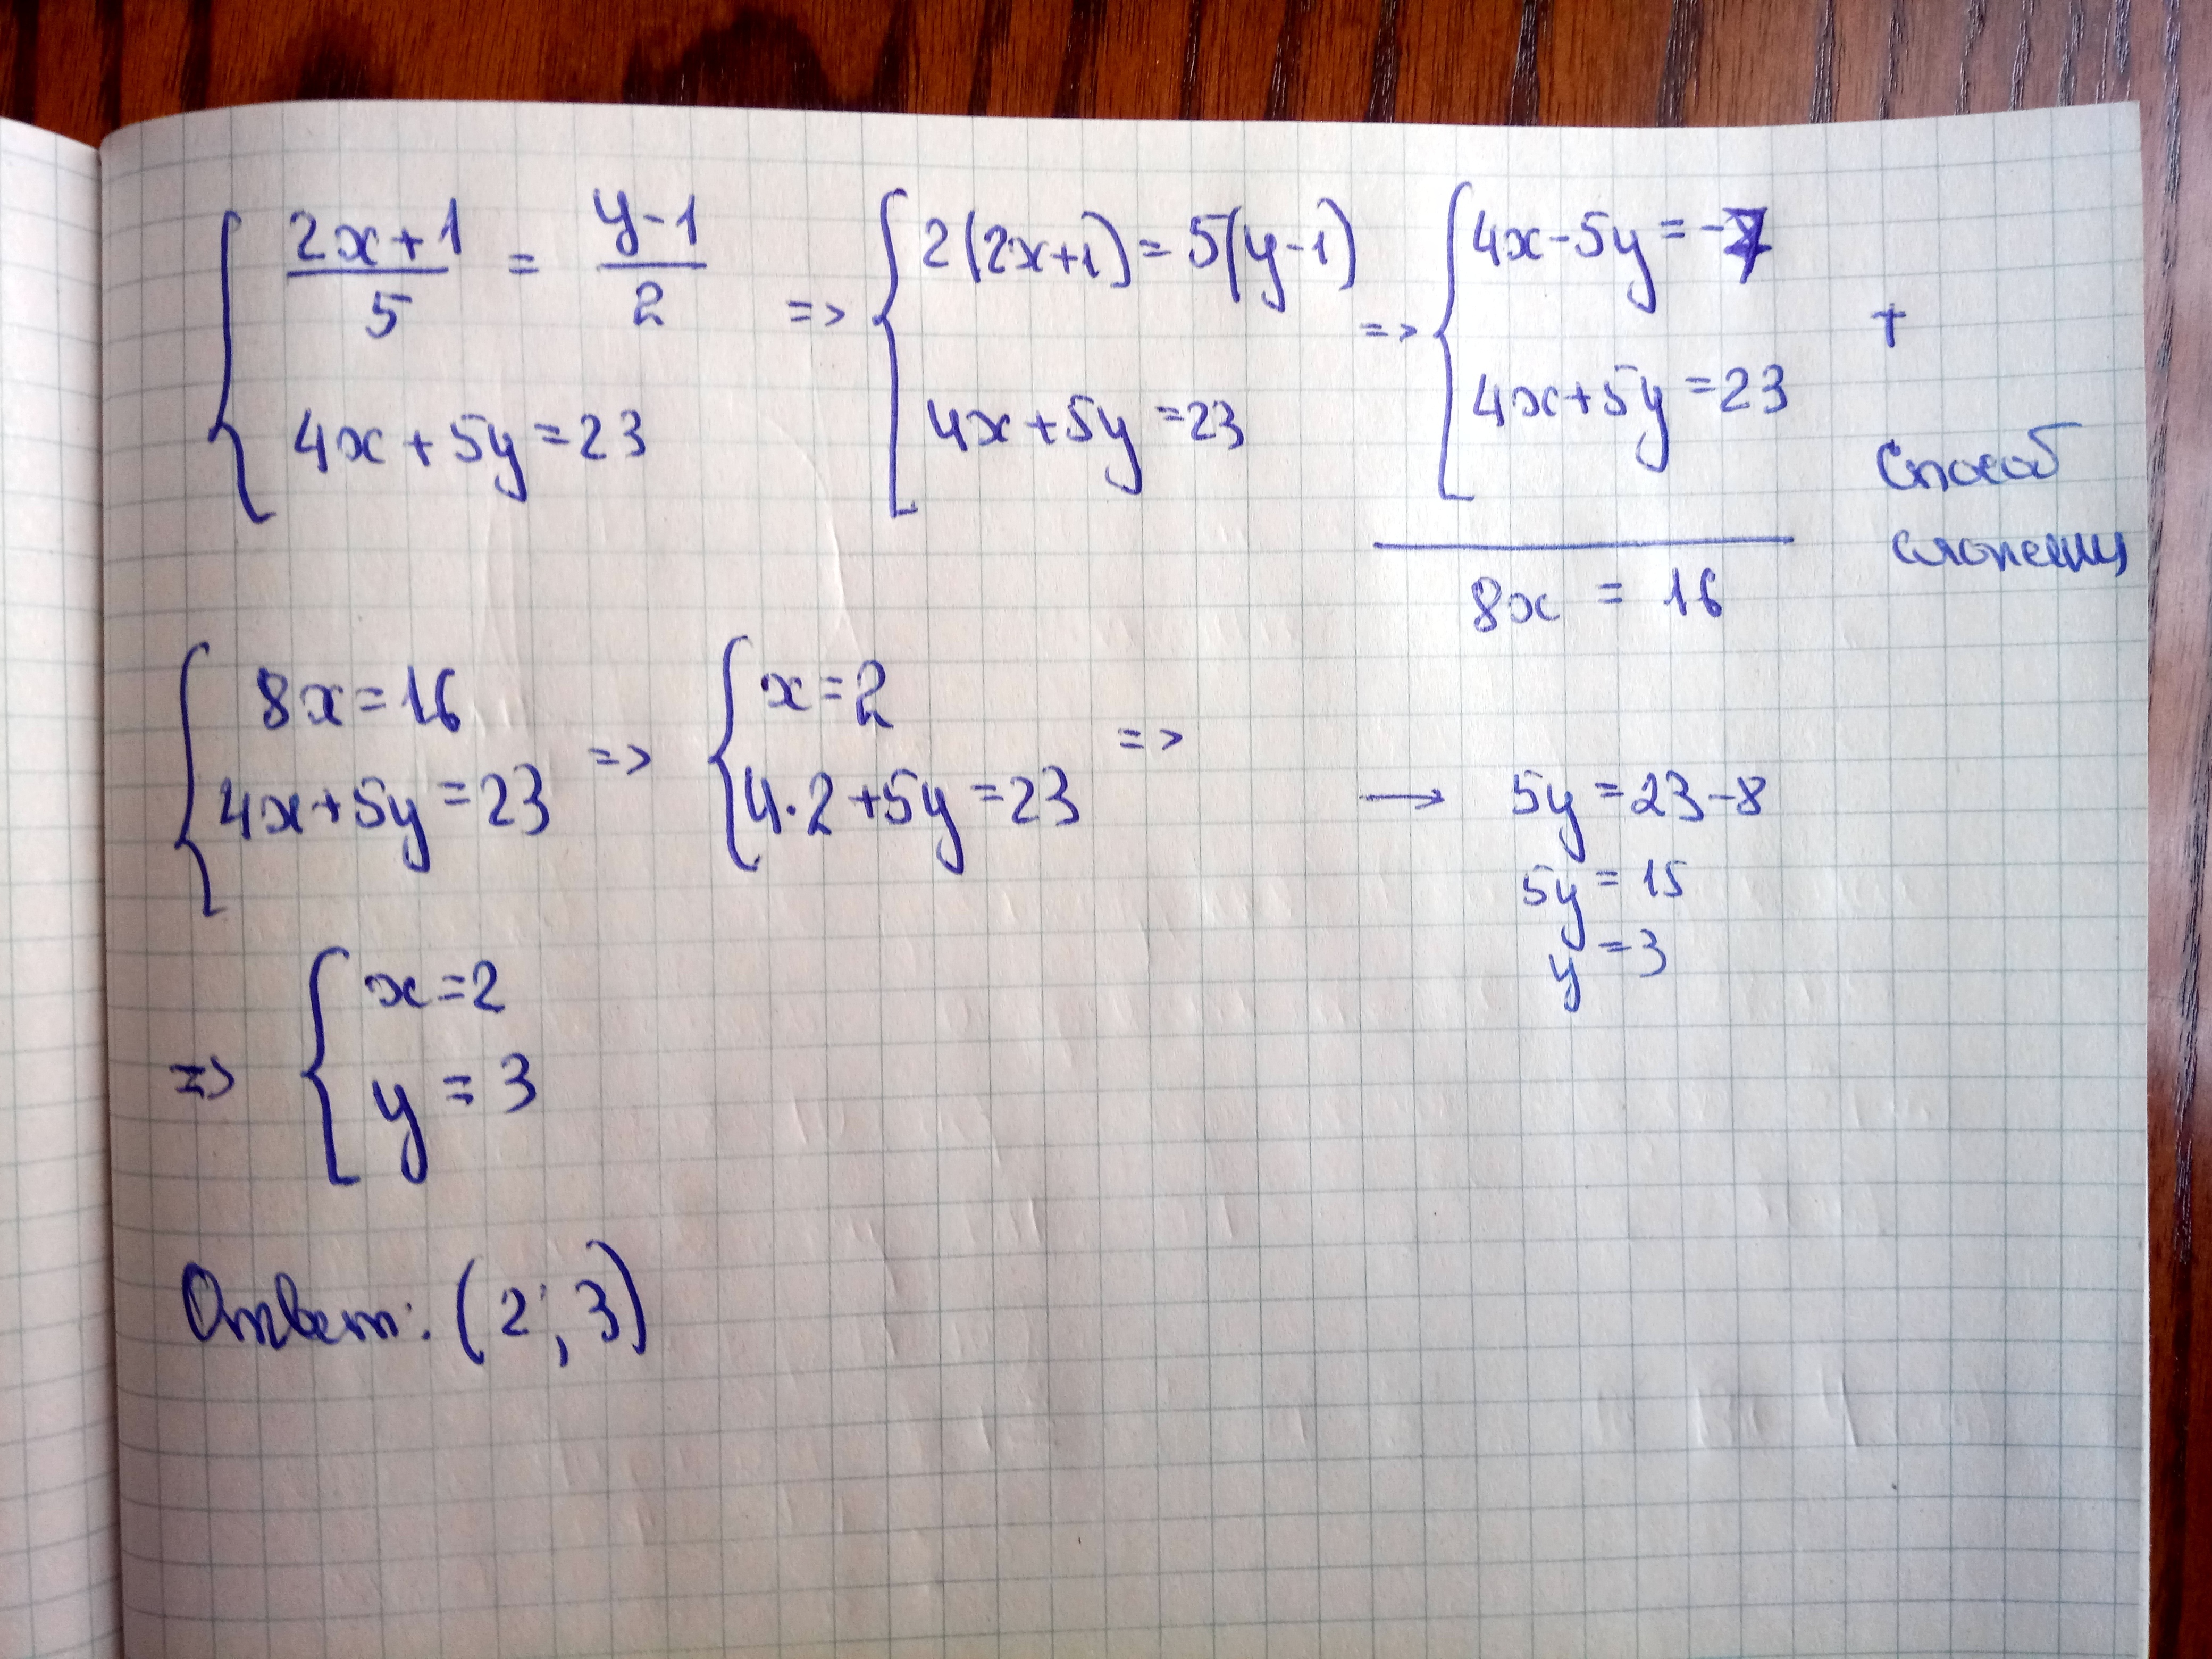 { (2x+1)/5 = (y-1)/2 => { 2(2x+1) = 5(y-1) => { 4x-5y = -7
4x+5y=23 4x+5y=23 4x+5y=23 +
способ
сложения
8x = 16
{ 8x=16 => { x=2 =>
4x+5y=23 4·2+5y=23 → 5y=23-8
5y=15
y=3
=> { x=2
y=3
Ответ: (2; 3)